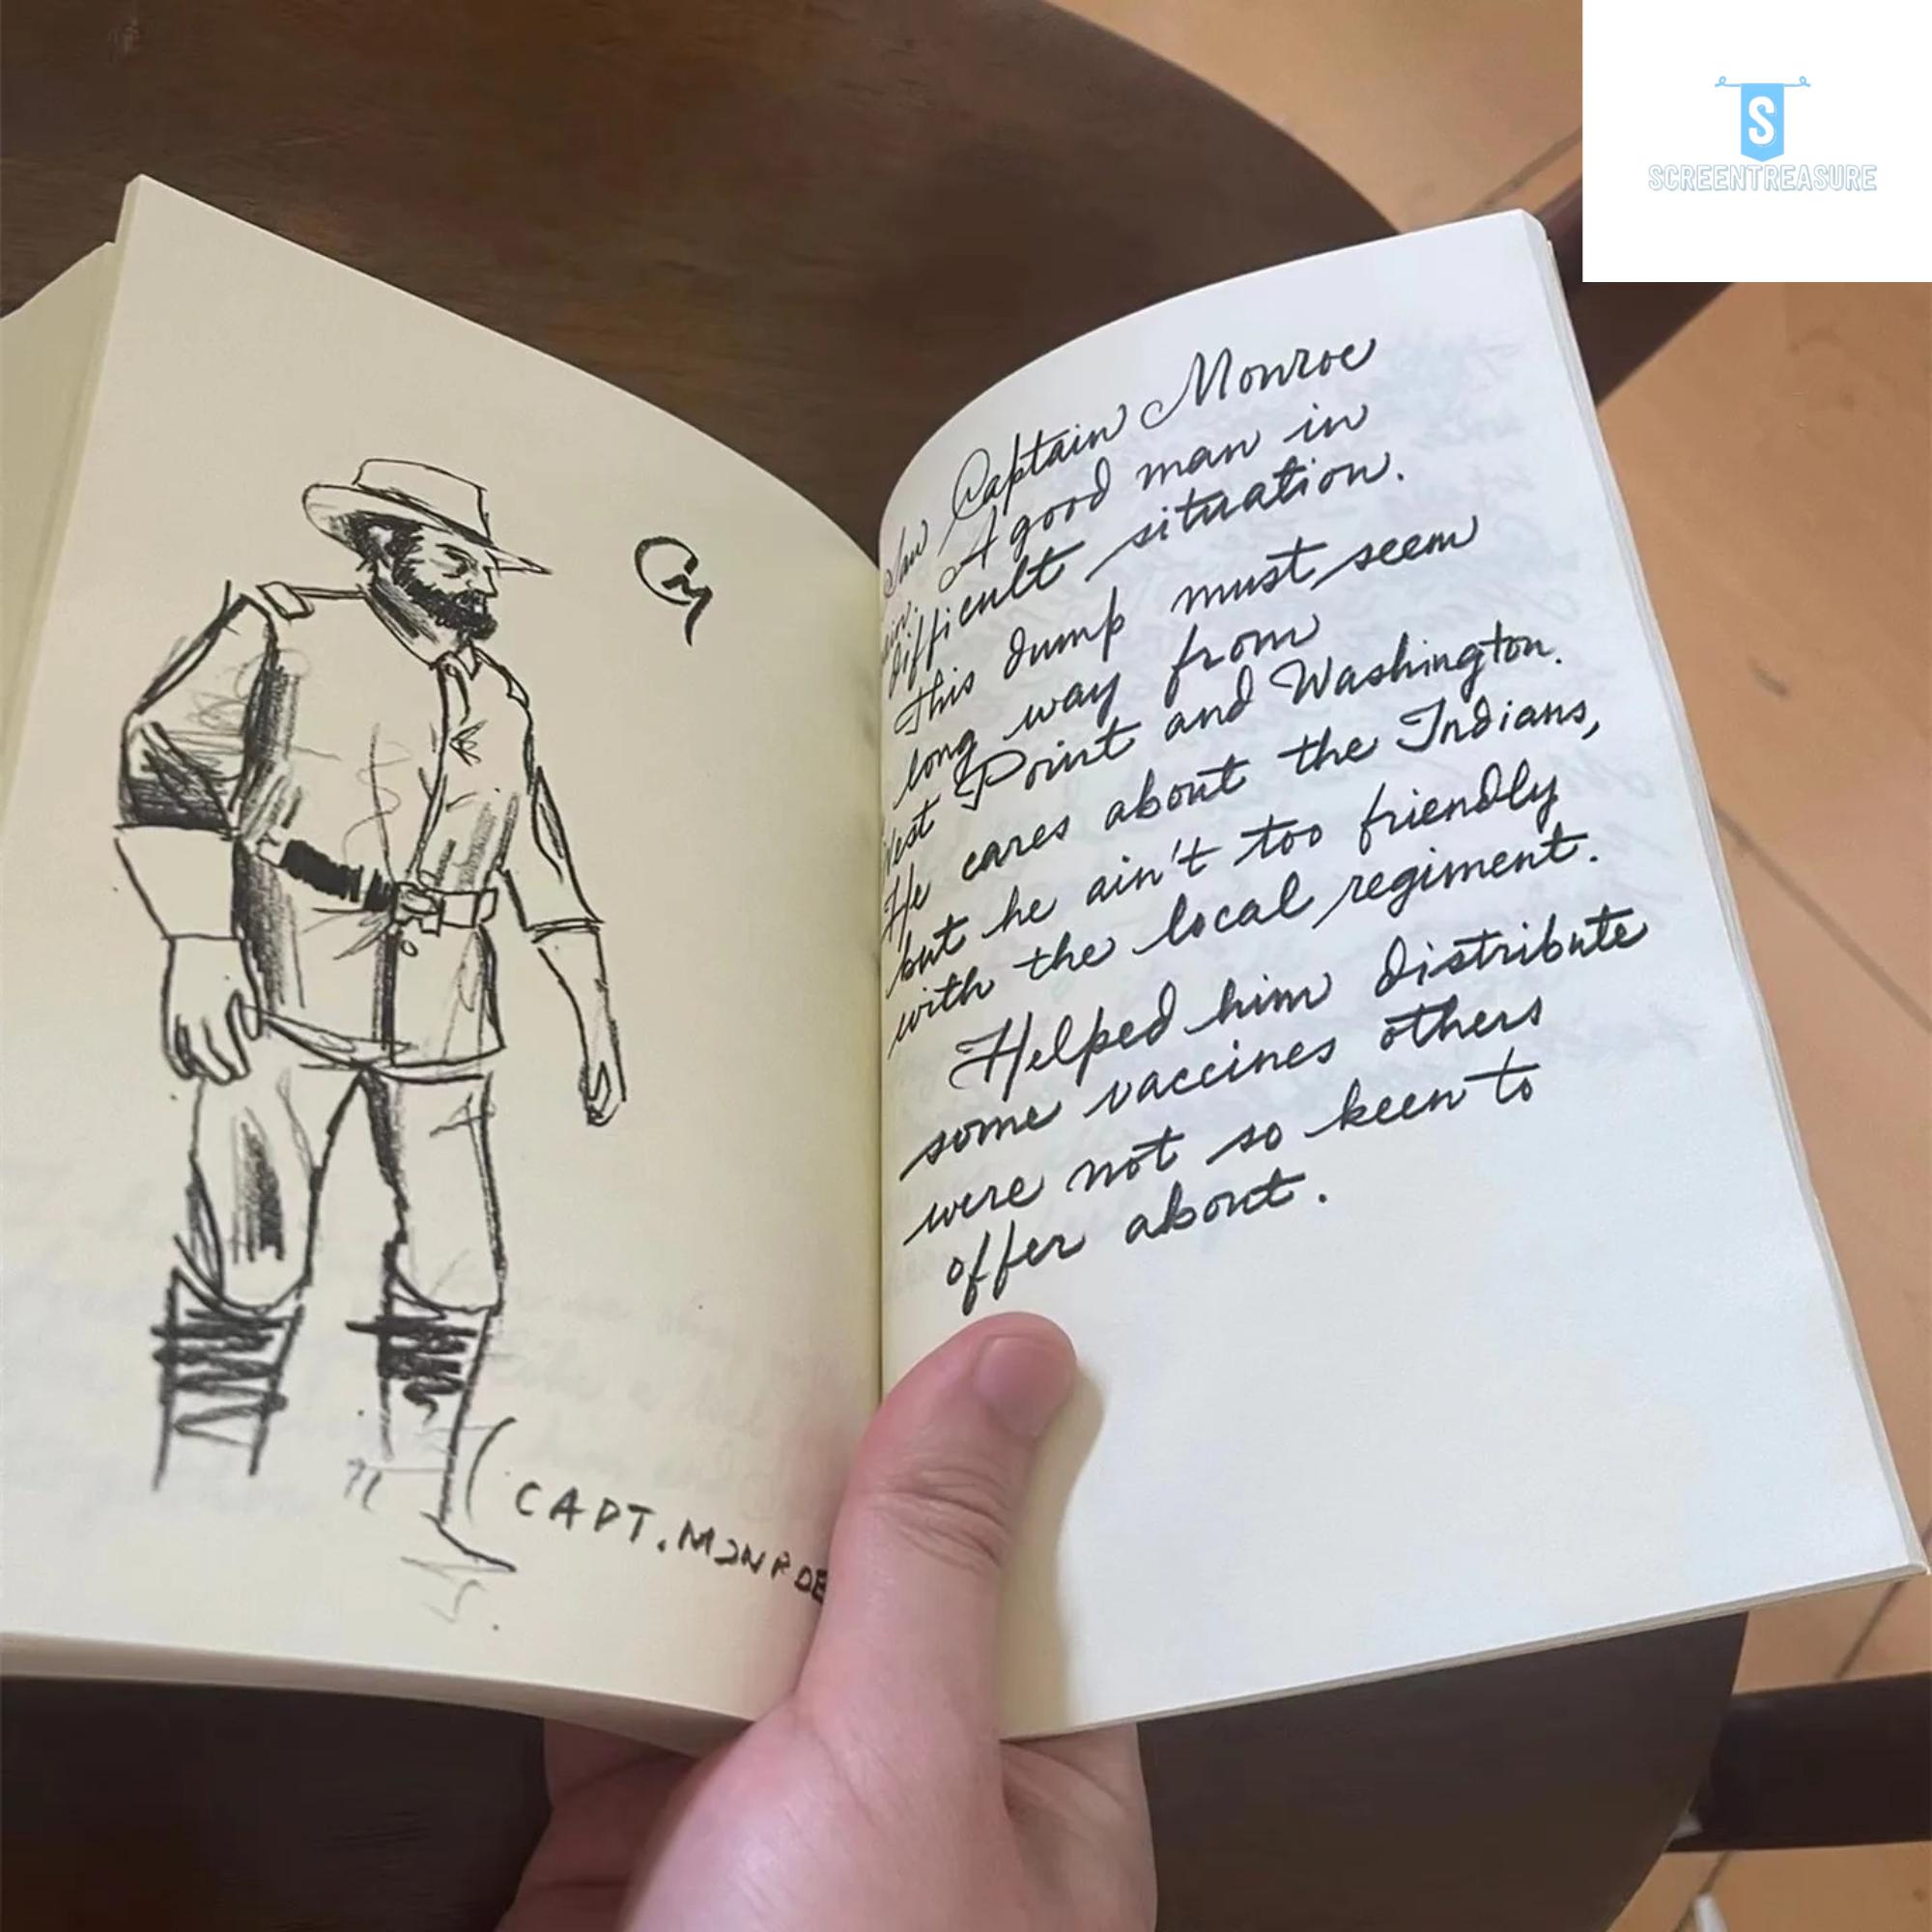 S
SCREENTREASURE
CAPT. MONROE
Saw Captain Monroe
A good man in
difficult situation.
This dump must seem
long way from
West Point and Washington.
He cares about the Indians,
but he ain't too friendly
with the local regiment.
Helped him distribute
some vaccines others
were not so keen to
offer about.